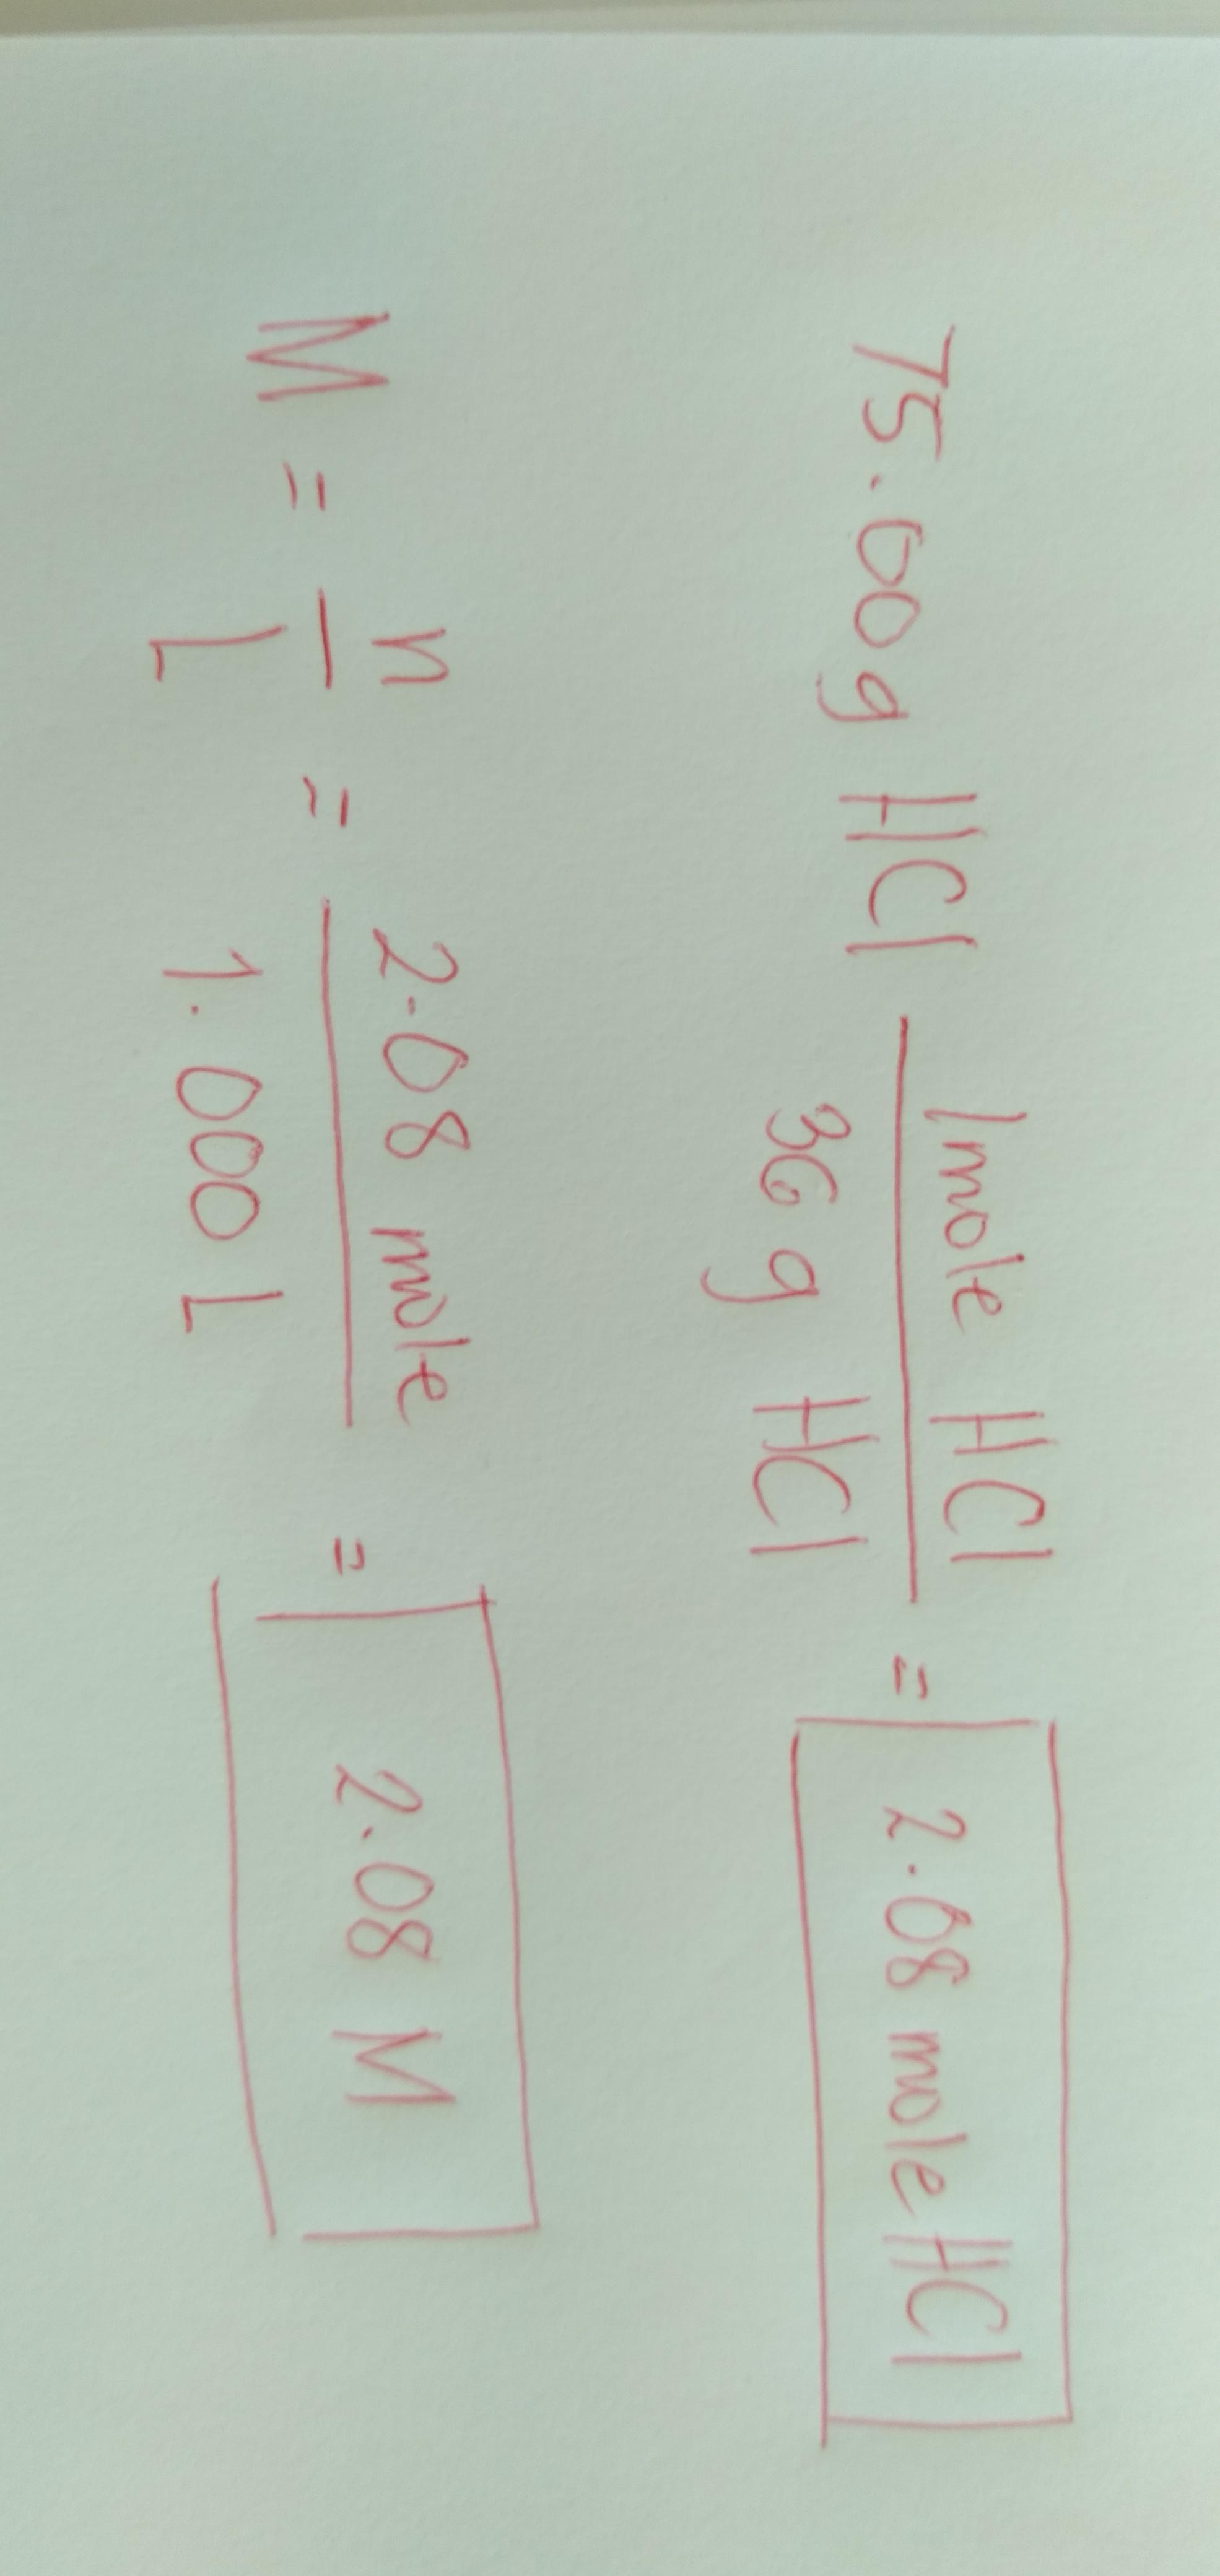 75.00g HCl 1mole HCl / 36 g HCl = 2.08 mole HCl
M = n / L = 2.08 mole / 1.000 L = 2.08 M